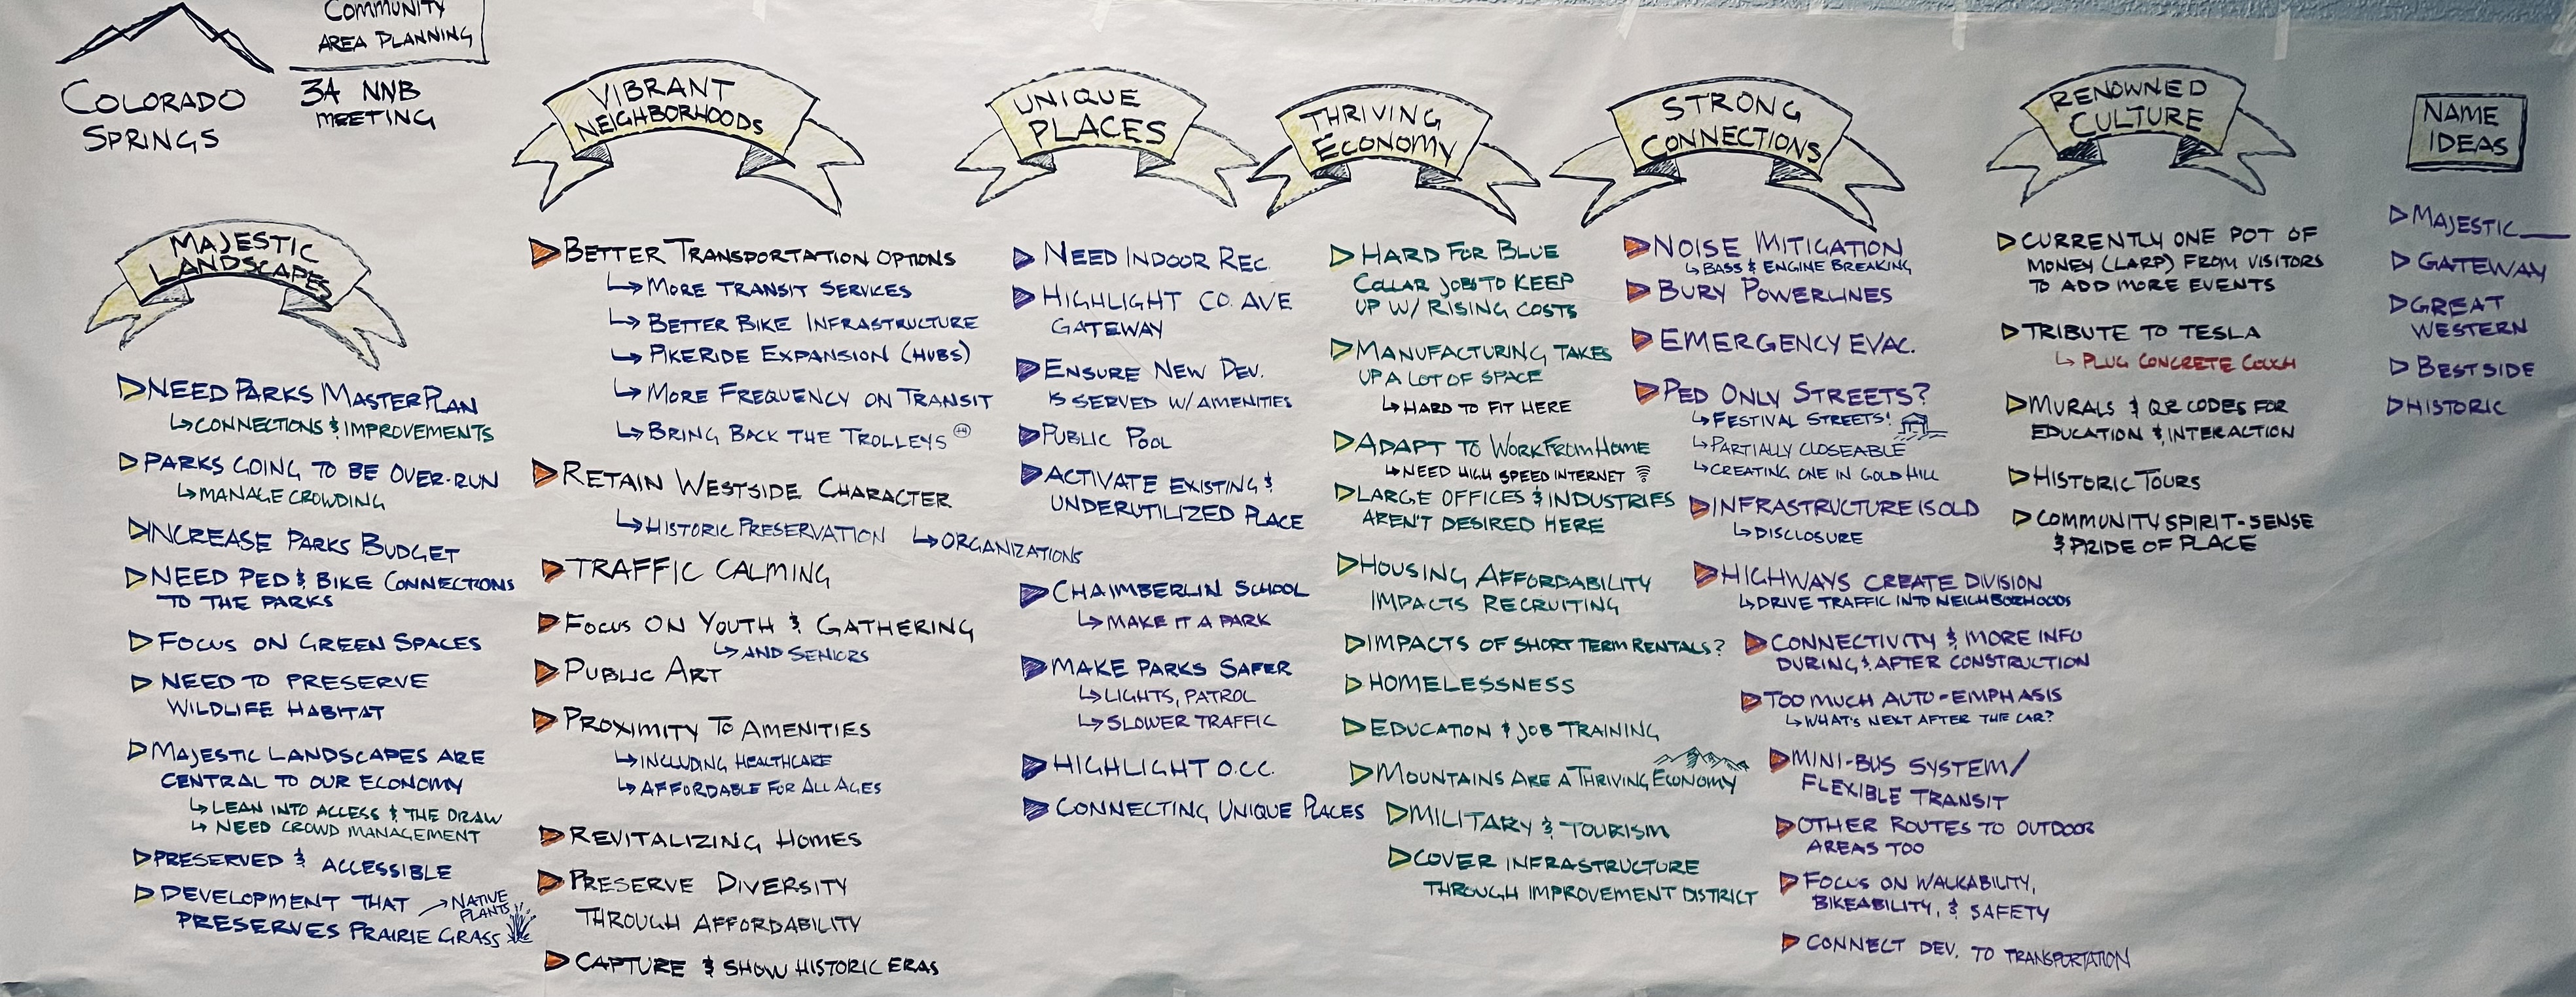 COMMUNITY
AREA PLANNING
COLORADO
SPRINGS
3A NNB
MEETING
MAJESTIC
LANDSCAPES
NEED PARKS MASTER PLAN
CONNECTIONS & IMPROVEMENTS
PARKS GOING TO BE OVER-RUN
MANAGE CROWDING
INCREASE PARKS BUDGET
NEED PED & BIKE CONNECTIONS
TO THE PARKS
FOCUS ON GREEN SPACES
NEED TO PRESERVE
WILDLIFE HABITAT
MAJESTIC LANDSCAPES ARE
CENTRAL TO OUR ECONOMY
LEAN INTO ACCESS & THE DRAW
NEED CROWD MANAGEMENT
PRESERVED & ACCESSIBLE
DEVELOPMENT THAT → NATIVE
PLANTS
PRESERVES PRAIRIE GRASS
VIBRANT
NEIGHBORHOODS
BETTER TRANSPORTATION OPTIONS
MORE TRANSIT SERVICES
BETTER BIKE INFRASTRUCTURE
PIKERIDE EXPANSION (HUBS)
MORE FREQUENCY ON TRANSIT
BRING BACK THE TROLLEYS
RETAIN WESTSIDE CHARACTER
HISTORIC PRESERVATION
ORGANIZATIONS
TRAFFIC CALMING
FOCUS ON YOUTH & GATHERING
AND SENIORS
PUBLIC ART
PROXIMITY TO AMENITIES
INCLUDING HEALTHCARE
AFFORDABLE FOR ALL AGES
REVITALIZING HOMES
PRESERVE DIVERSITY
THROUGH AFFORDABILITY
CAPTURE & SHOW HISTORIC ERAS
UNIQUE
PLACES
NEED INDOOR REC.
HIGHLIGHT CO. AVE
GATEWAY
ENSURE NEW DEV.
IS SERVED W/ AMENITIES
PUBLIC POOL
ACTIVATE EXISTING &
UNDERUTILIZED PLACE
CHAIMBERLIN SCHOOL
MAKE IT A PARK
MAKE PARKS SAFER
LIGHTS, PATROL
SLOWER TRAFFIC
HIGHLIGHT O.C.C.
CONNECTING UNIQUE PLACES
THRIVING
ECONOMY
HARD FOR BLUE
COLLAR JOBS TO KEEP
UP W/ RISING COSTS
MANUFACTURING TAKES
UP A LOT OF SPACE
HARD TO FIT HERE
ADAPT TO WORK FROM HOME
NEED HIGH SPEED INTERNET
LARGE OFFICES & INDUSTRIES
AREN'T DESIRED HERE
HOUSING AFFORDABILITY
IMPACTS RECRUITING
IMPACTS OF SHORT TERM RENTALS?
HOMELESSNESS
EDUCATION & JOB TRAINING
MOUNTAINS ARE A THRIVING ECONOMY
MILITARY & TOURISM
COVER INFRASTRUCTURE
THROUGH IMPROVEMENT DISTRICT
STRONG
CONNECTIONS
NOISE MITIGATION
BASS & ENGINE BREAKING
BURY POWERLINES
EMERGENCY EVAC.
PED ONLY STREETS?
FESTIVAL STREETS!
PARTIALLY CLOSEABLE
CREATING ONE IN GOLD HILL
INFRASTRUCTURE IS OLD
DISCLOSURE
HIGHWAYS CREATE DIVISION
DRIVE TRAFFIC INTO NEIGHBORHOODS
CONNECTIVITY & MORE INFO
DURING & AFTER CONSTRUCTION
TOO MUCH AUTO-EMPHASIS
WHAT'S NEXT AFTER THE CAR?
MINI-BUS SYSTEM/
FLEXIBLE TRANSIT
OTHER ROUTES TO OUTDOOR
AREAS TOO
FOCUS ON WALKABILITY,
BIKEABILITY, & SAFETY
CONNECT DEV. TO TRANSPORTATION
RENOWNED
CULTURE
CURRENTLY ONE POT OF
MONEY (LARP) FROM VISITORS
TO ADD MORE EVENTS
TRIBUTE TO TESLA
PLUG CONCRETE COUCH
MURALS & QR CODES FOR
EDUCATION & INTERACTION
HISTORIC TOURS
COMMUNITY SPIRIT-SENSE
& PRIDE OF PLACE
NAME
IDEAS
MAJESTIC____
GATEWAY
GREAT
WESTERN
BEST SIDE
HISTORIC